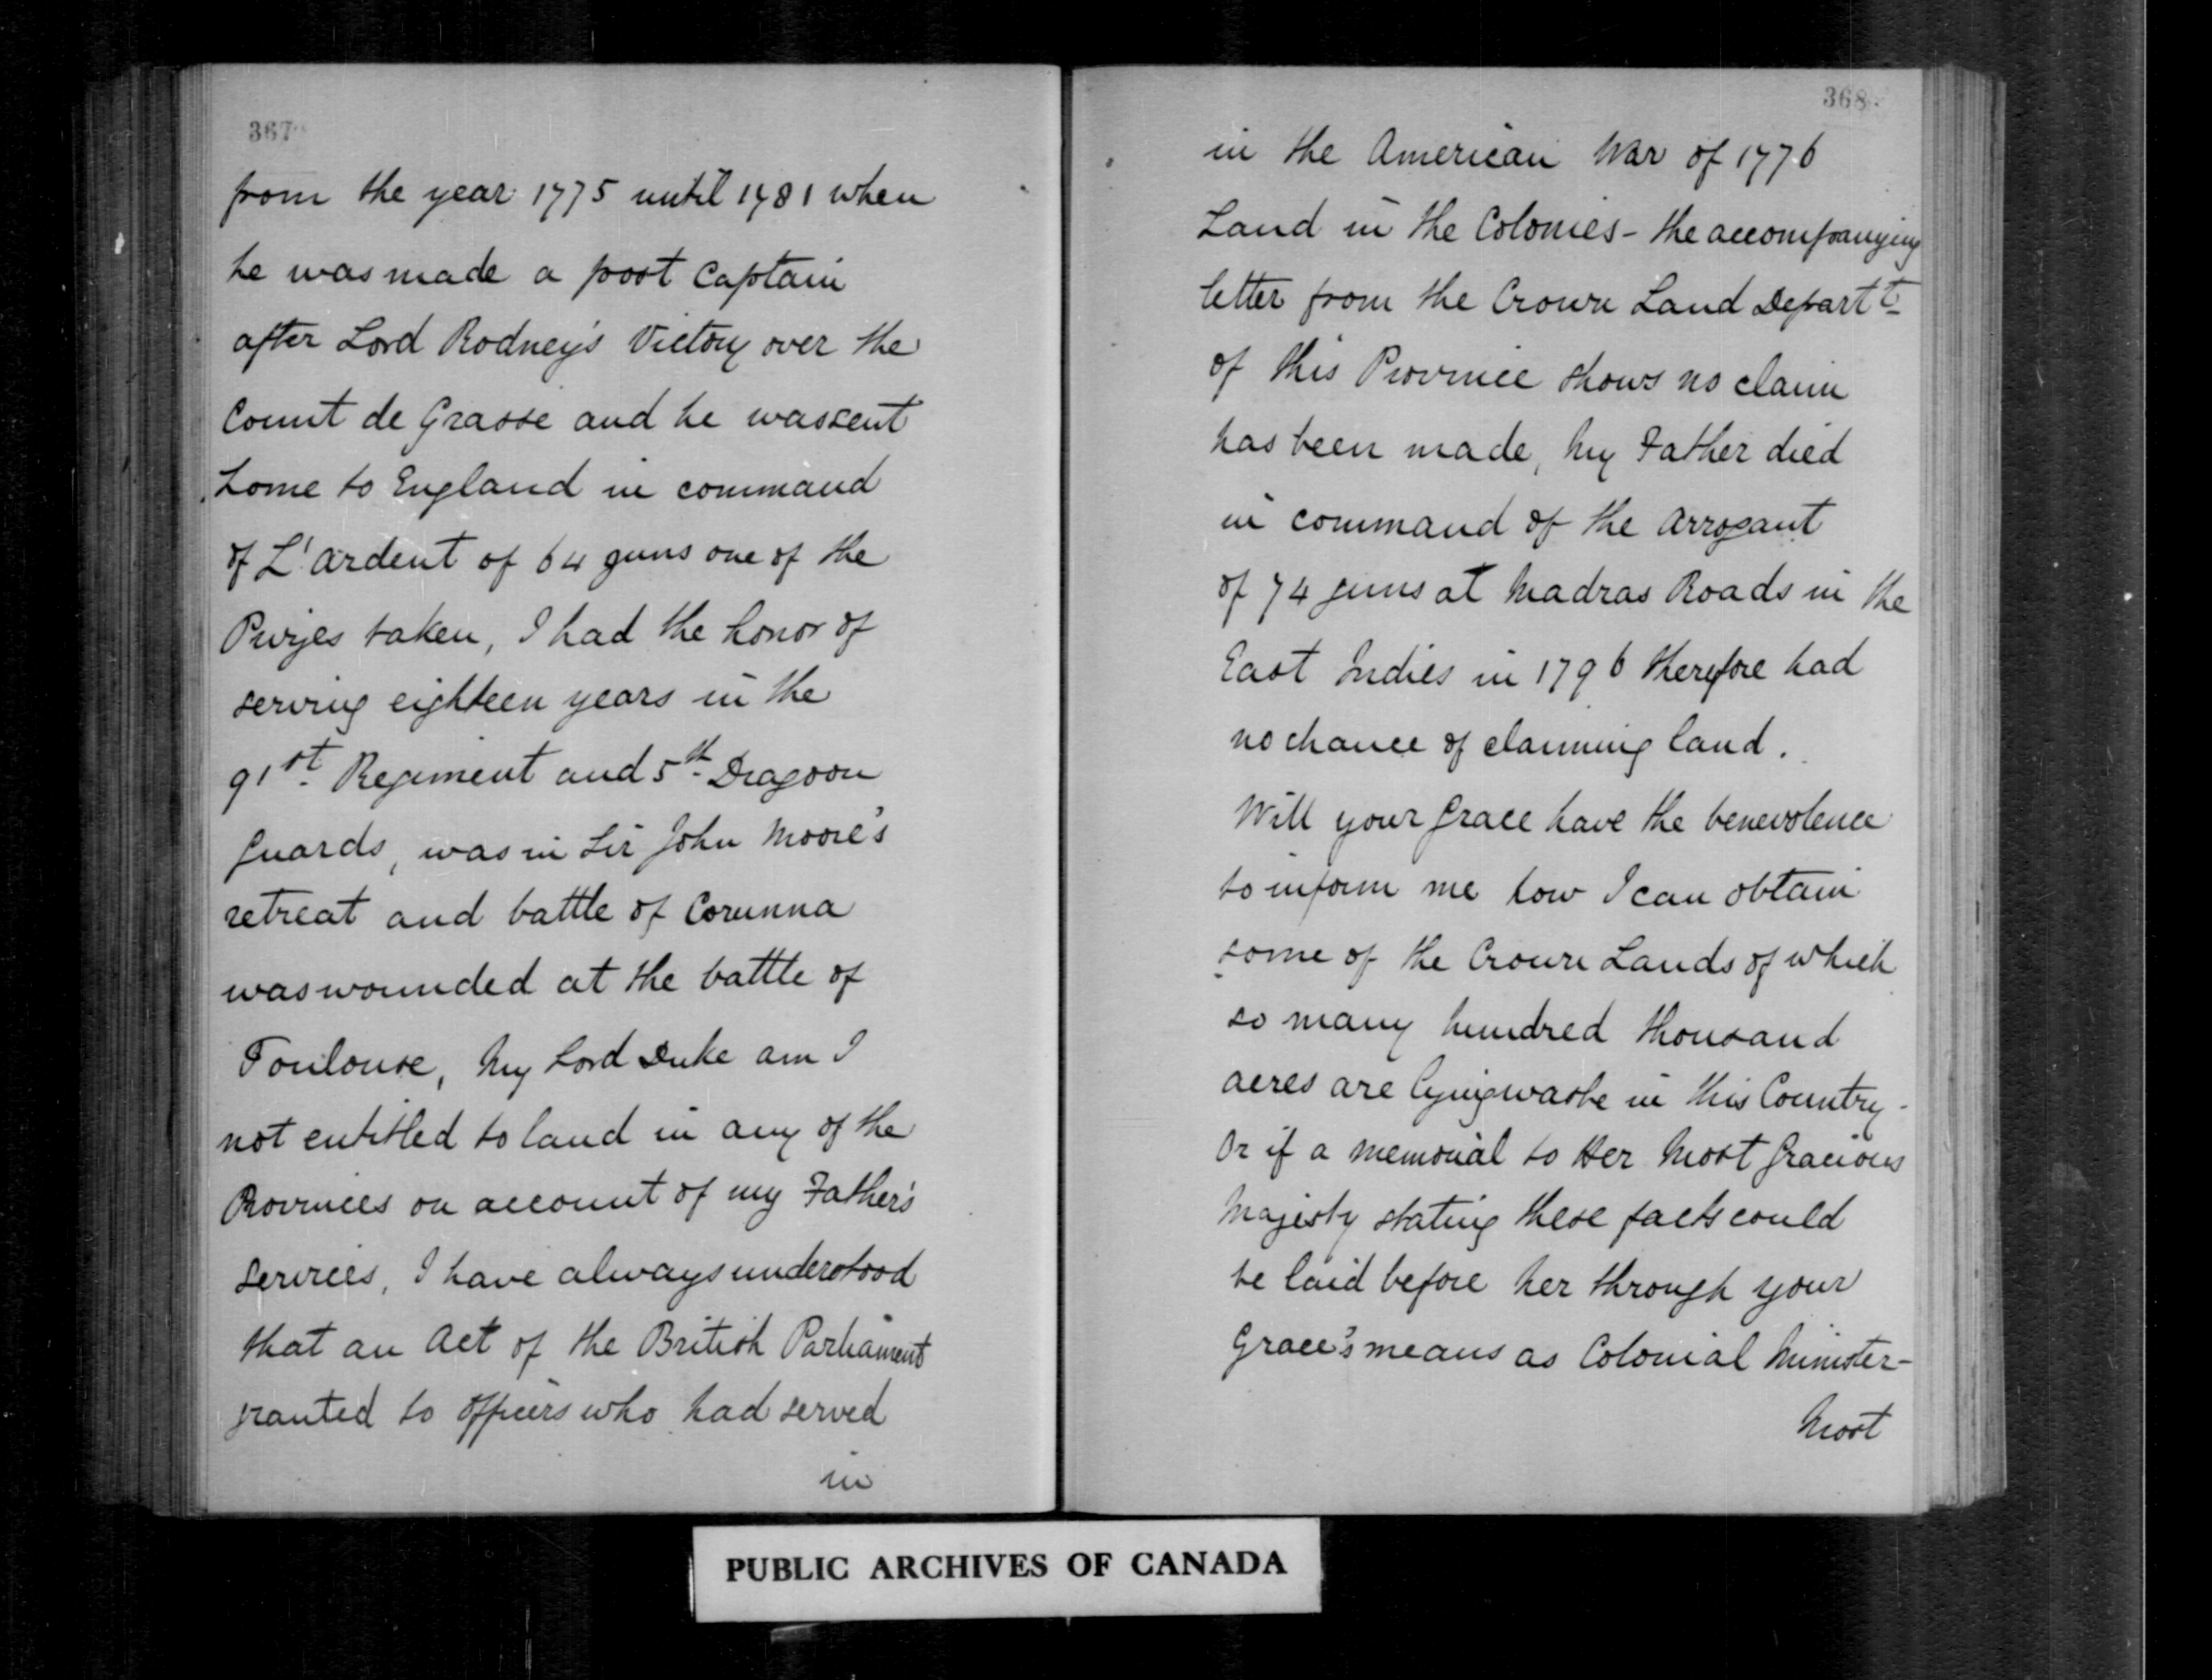 367
from the year 1775 until 1781 when
he was made a post Captain
after Lord Rodney's Victory over the
Count de Grasse and he was sent
home to England in command
of L'Ardent of 64 guns one of the
Prizes taken, I had the honor of
serving eighteen years in the
91st Regiment and 5th Dragoon
Guards, was in Sir John Moore's
retreat and battle of Corunna
was wounded at the battle of
Toulouse, My Lord Duke am I
not entitled to land in any of the
Provinces on account of my Father's
services, I have always understood
that an Act of the British Parliament
granted to officers who had served
in
368
in the American War of 1776
Land in the Colonies - the accompanying
letter from the Crown Land Departt
of this Province shows no claim
has been made, My Father died
in command of the Arrogant
of 74 guns at Madras Roads in the
East Indies in 1796 therefore had
no chance of claiming land.
Will your Grace have the benevolence
to inform me how I can obtain
some of the Crown Lands of which
so many hundred thousand
acres are lying waste in this Country -
Or if a memorial to Her Most Gracious
Majesty stating these facts could
be laid before her through your
Grace's means as Colonial Minister -
Most
PUBLIC ARCHIVES OF CANADA